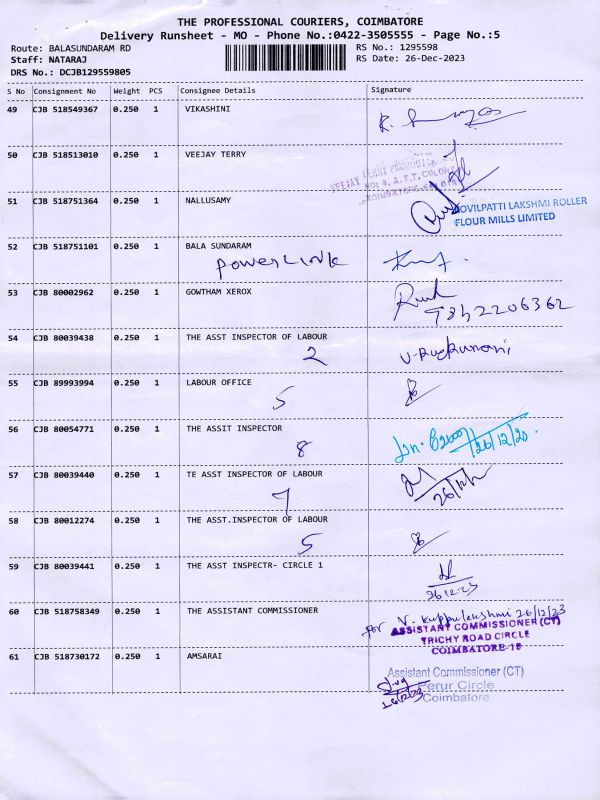 THE PROFESSIONAL COURIERS, COIMBATORE
Delivery Runsheet - MO - Phone No.:0422-3505555 - Page No.:5
Route: BALASUNDARAM RD
RS No.: 1295598
Staff: NATARAJ
RS Date: 26-Dec-2023
DRS No.: DCJB129559805
S No Consignment No Weight PCS Consignee Details Signature
49 CJB 518549367 0.250 1 VIKASHINI
50 CJB 518513010 0.250 1 VEEJAY TERRY
VEEJAY TERRY
NO: 8, A.T.T. COLONY
COIMBATORE
51 CJB 518751364 0.250 1 NALLUSAMY
KOVILPATTI LAKSHMI ROLLER
FLOUR MILLS LIMITED
52 CJB 518751101 0.250 1 BALA SUNDARAM
POWERLINK
53 CJB 80002962 0.250 1 GOWTHAM XEROX
54 CJB 80039438 0.250 1 THE ASST INSPECTOR OF LABOUR
2
V. Rukumani
55 CJB 89993994 0.250 1 LABOUR OFFICE
5
56 CJB 80054771 0.250 1 THE ASSIT INSPECTOR
8
26/12/23
57 CJB 80039440 0.250 1 TE ASST INSPECTOR OF LABOUR
7
26/12
58 CJB 80012274 0.250 1 THE ASST.INSPECTOR OF LABOUR
5
59 CJB 80039441 0.250 1 THE ASST INSPECTR- CIRCLE 1
26.12.23
60 CJB 518758349 0.250 1 THE ASSISTANT COMMISSIONER
for V. Kuppulakshmi 26/12/23
ASSISTANT COMMISSIONER (CT)
TRICHY ROAD CIRCLE
COIMBATORE-18
61 CJB 518730172 0.250 1 AMSARAI
Assistant Commissioner (CT)
Perur Circle
26/12/23 Coimbatore